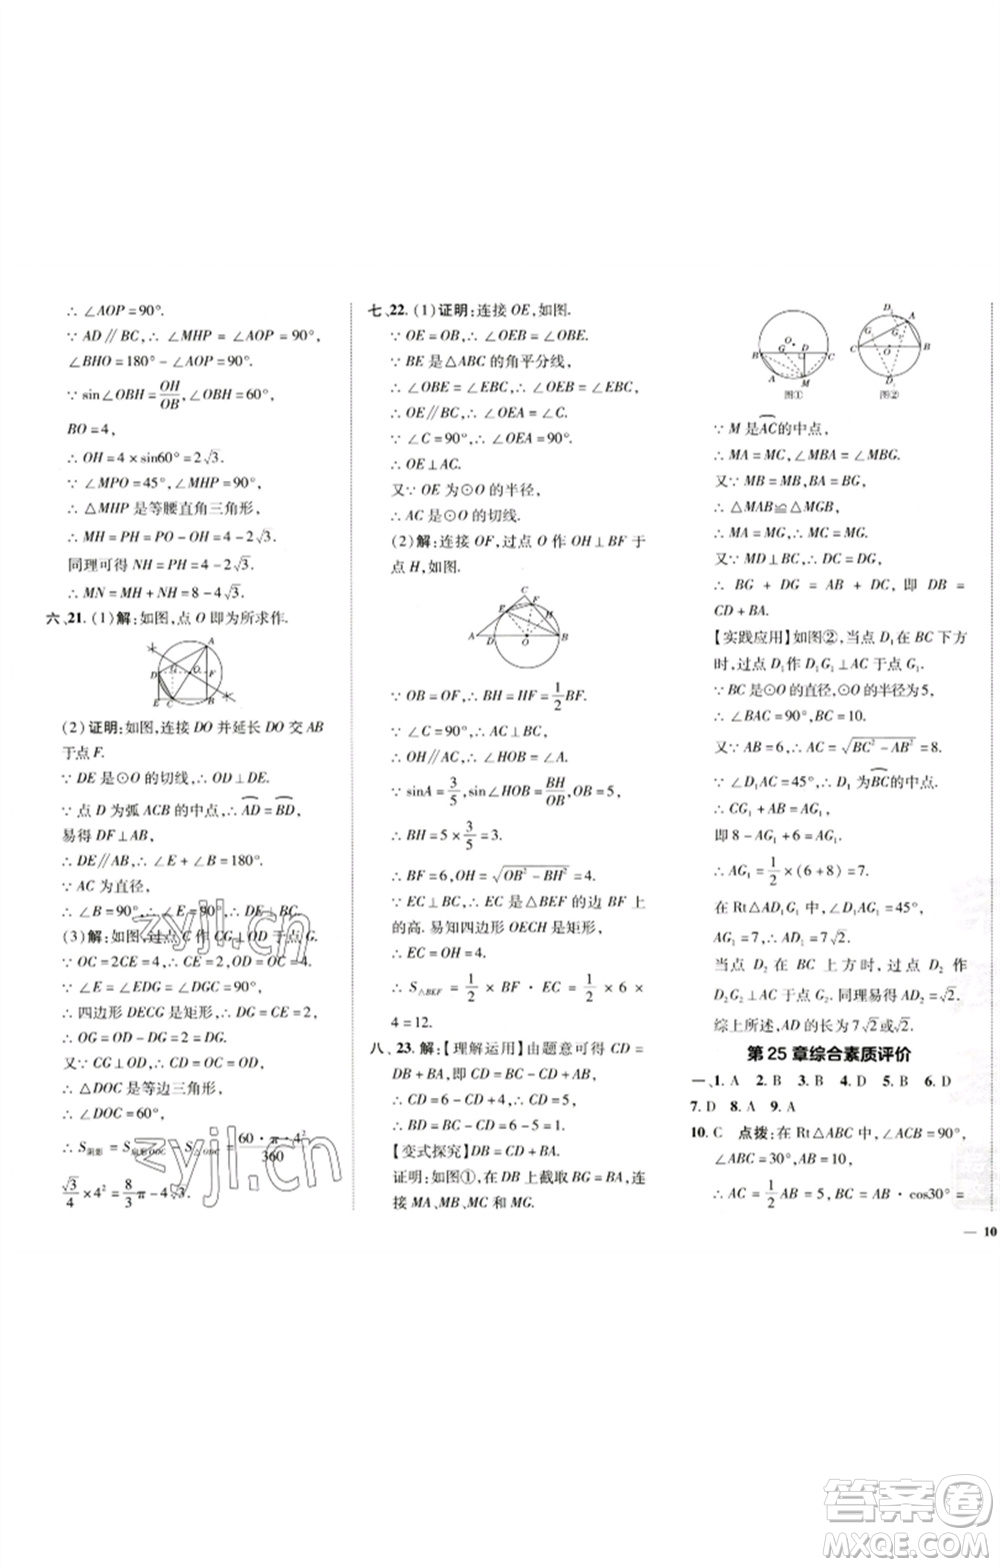 ∴ ∠AOP=90°.
∵ AD∥BC,∴ ∠MHP = ∠AOP=90°,
∠BHO=180°-∠AOP=90°.
∵ sin∠OBH=OH/OB,∠OBH=60°,
BO=4,
∴ OH=4×sin60°=2√3.
∵ ∠MPO=45°,∠MHP=90°,
∴ △MHP 是等腰直角三角形,
∴ MH=PH=PO-OH=4-2√3.
同理可得 NH=PH=4-2√3,
∴ MN=MH+NH=8-4√3.
六、21. (1)解:如图,点 O 即为所求作.
(2)证明:如图,连接 DO 并延长 DO 交 AB
于点 F.
∵ DE 是⊙O 的切线,∴ OD⊥DE.
∵ 点 D 为弧 ACB 的中点,∴ AD=BD,
易得 DF⊥AB,
∴ DE∥AB,∴ ∠E+∠B=180°.
∵ AC 为直径,
∴ ∠B=90°,∴ ∠E=90°,∴ DE⊥BC.
(3)解:如图,过点 C 作 CG⊥OD 于点 G.
∵ OC=2CE=4,∴ CE=2,OD=4.
∵ ∠E=∠EDG=∠DGC=90°,
∴ 四边形 DECG 是矩形,∴ DG=CE=2,
∴ OG=OD-DG=2,∴ OG=DG.
∵ CG⊥OD,∴ DC=CO=OD=4,
∴ △DOC 是等边三角形,
∴ ∠DOC=60°,
∴ S阴影=S扇形DOC-S△DOC=60·π·4²/360-
√3/4×4²=8/3π-4√3.
七、22. (1)证明:连接 OE,如图.
∵ OE=OB,∴ ∠OEB=∠OBE.
∵ BE 是△ABC 的角平分线,
∴ ∠OBE=∠EBC,∴ ∠OEB=∠EBC,
∴ OE∥BC,∴ ∠OEA=∠C.
∵ ∠C=90°,∴ ∠OEA=90°,
∴ OE⊥AC.
又∵ OE 为⊙O 的半径,
∴ AC 是⊙O 的切线.
(2)解:连接 OF,过点 O 作 OH⊥BF 于
点 H,如图.
∵ OB=OF,∴ BH=HF=1/2BF.
∵ ∠C=90°,∴ ∠C=∠OHB,
∴ OH∥AC,∴ ∠HOB=∠A.
∵ sinA=3/5,sin∠HOB=BH/OB,OB=5,
∴ BH=5×3/5=3.
∴ BF=6,OH=√(OB²-BH²)=4.
∵ EC⊥BC,∴ EC是△BEF的边BF上
的高.易知四边形 OECH 是矩形,
∴ EC=OH=4.
∴ S△BEF = 1/2 × BF · EC = 1/2 × 6 ×
4=12.
八、23. 解:【理解运用】由题意可得 CD=
DB+BA,∴ CD=6-CD+AB,
∴ CD=6-CD+4,∴ CD=5,
∴ BD=BC-CD=6-5=1.
【变式探究】DB=CD+BA.
证明:如图①,在 DB 上截取 BG=BA,连
接 MA,MB,MC 和 MG.
图① 图②
∵ M 是AC的中点,
∴ MA=MC,∠MBA=∠MBG.
又∵ MB=MB,BA=BG,
∴ △MAB≌△MGB,
∴ MA=MG,∴ MC=MG.
又∵ MD⊥BC,∴ DC=DG,
∴ BG + DG = AB + DC,即 DB=
CD+BA.
【实践应用】如图②,当点 D₁ 在 BC 下方
时,过点 D₁ 作 D₁G₁⊥AC 于点 G₁.
∵ BC 是⊙O 的直径,⊙O的半径为5,
∴ ∠BAC=90°,BC=10.
又∵ AB=6,∴ AC=√(BC²-AB²)=8.
∵ ∠D₁AC=45°,∴ D₁ 为BC的中点,
∴ CG₁+AG₁=AC,CG₁=AG₁+AB,
即 8-AG₁+6=AG₁.
∴ AG₁=1/2×(6+8)=7.
在 Rt△AD₁G₁ 中,∠D₁AG₁=45°,
AG₁=7,∴ AD₁=7√2.
当点 D₂ 在 BC 上方时,过点 D₂ 作
D₂G₂⊥AC 于点 G₂. 同理易得 AD₂=√2.
综上所述,AD 的长为 7√2或√2.
第 25 章综合素质评价
一、1. A 2. B 3. B 4. D 5. B 6. D
7. D 8. A 9. A
10. C 点拨:在 Rt△ABC 中,∠ACB=90°,
∠ABC=30°,AB=10,
∴ AC=1/2AB=5,BC=AB·cos30°=
— 10
zyjl.cn
zyjl.cn
答案圈
MXQE.COM